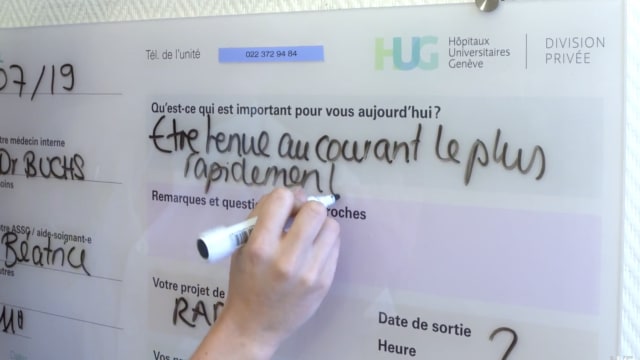 07/19
Tél. de l'unité
022 372 94 84
HUG
Hôpitaux
Universitaires
Genève
DIVISION
PRIVÉE
Qu'est-ce qui est important pour vous aujourd'hui?
Etre tenue au courant le plus
rapidement
médecin interne
Dr BUCHS
ASSC / aide-soignant-e
Béatrice
Remarques et questi
roches
Votre projet de
RAD
Date de sortie
Heure
?